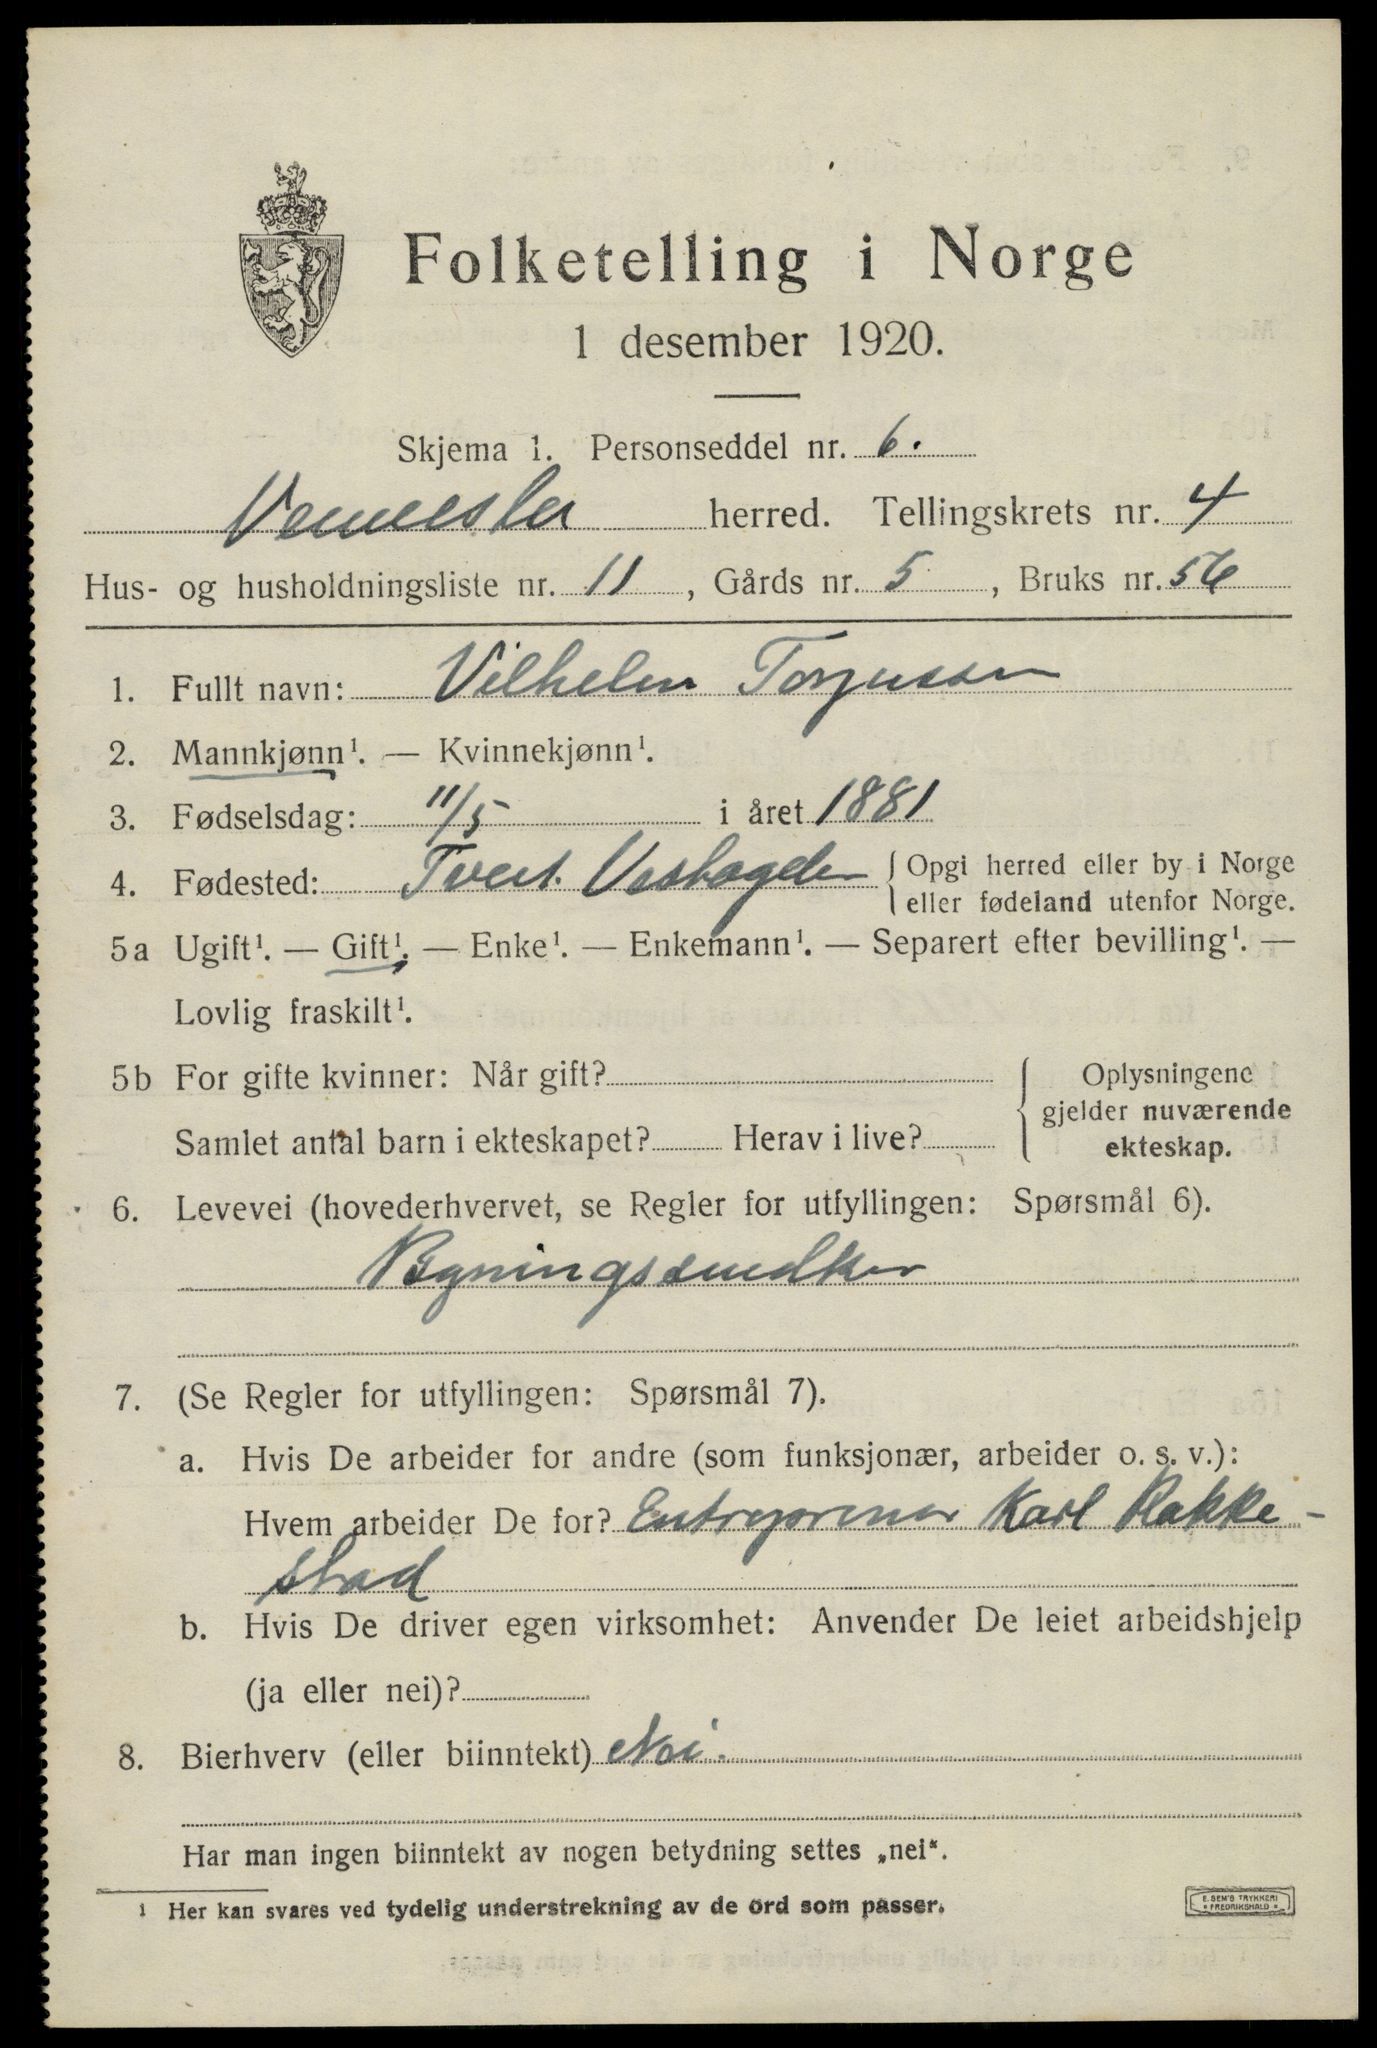 Folketelling i Norge
1 desember 1920.
Skjema 1. Personseddel nr. 6.
Vennesla herred. Tellingskrets nr. 4
Hus- og husholdningsliste nr. 11, Gårds nr. 5, Bruks nr. 56
1. Fullt navn: Vilhelm Torjussen
2. Mannkjønn¹. — Kvinnekjønn¹.
3. Fødselsdag: 11/5 i året 1881
4. Fødested: Tveit Vestagder { Opgi herred eller by i Norge
eller fødeland utenfor Norge.
5a Ugift¹. — Gift¹. — Enke¹. — Enkemann¹. — Separert efter bevilling¹. —
Lovlig fraskilt¹.
5b For gifte kvinner: Når gift? { Oplysningene
gjelder nuværende
Samlet antal barn i ekteskapet? Herav i live? ekteskap.
6. Levevei (hovederhvervet, se Regler for utfyllingen: Spørsmål 6).
Bygningssnedker
7. (Se Regler for utfyllingen: Spørsmål 7).
a. Hvis De arbeider for andre (som funksjonær, arbeider o. s. v.):
Hvem arbeider De for? Entreprenør Karl Rakke-
stad
b. Hvis De driver egen virksomhet: Anvender De leiet arbeidshjelp
(ja eller nei)?
8. Bierhverv (eller biinntekt) Nei.
Har man ingen biinntekt av nogen betydning settes „nei“.
¹ Her kan svares ved tydelig understrekning av de ord som passer.
E. SEM'S TRYKKERI
* FREDRIKSHALD *